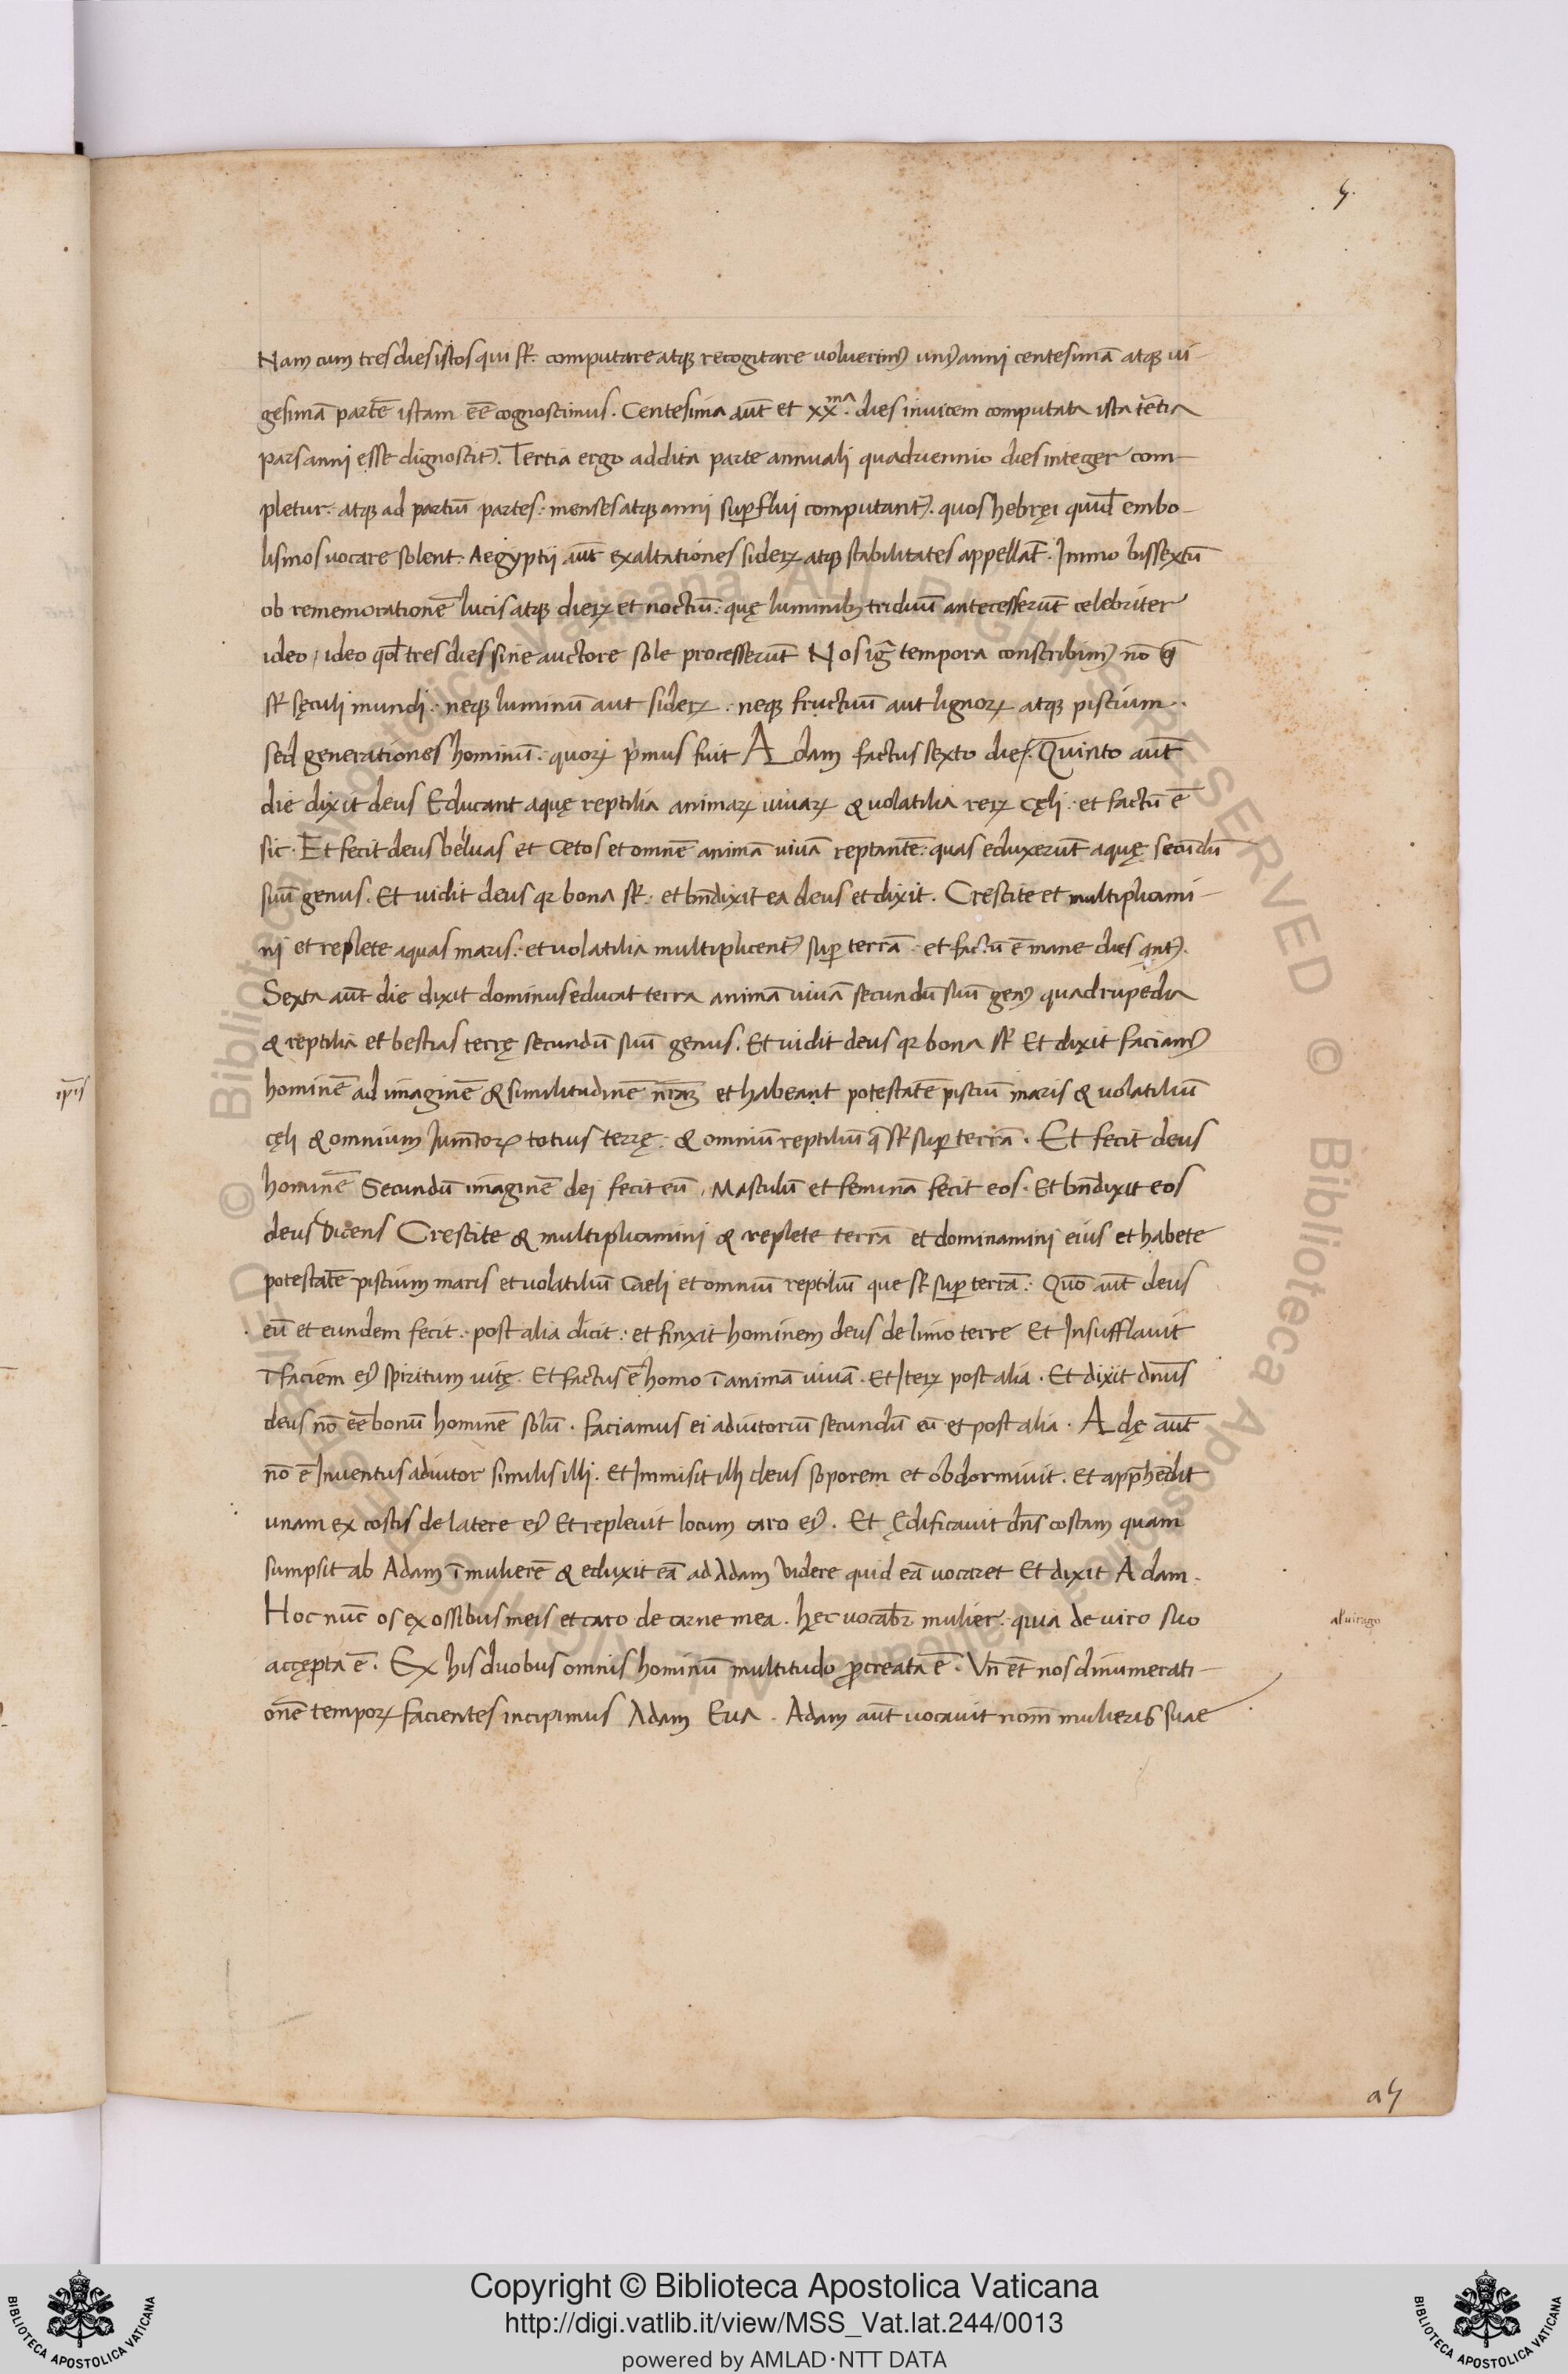 5.
Nam cum tres dies istos qui st̄. computare atq; recogitare uoluerimꝰ unꝰ anni centesimā atq; ui-
gesimā partē istam eē cognoscimus. Centesima aūt et xxma. dies inuicem computata ista tētia
pars anni esse dignoscitꝰ. Tertia ergo addita parte annuali quadriennio dies integer com-
pletur: atq; ad partiū partes: menses atq; anni suꝑflui computantꝰ. quos hebręi quid embo-
lismos uocare solent: Aegyptii aūt exaltationes siderꝝ atq; stabilitates appellāt. Immo bissextū
ob rememorationē lucis atq; dierꝝ et noctiū: quę luminibꝫ triduū antecesserūt celebriter
ideo / ideo qd̄ tres dies sine auctore sole processerūt Nos ig̃ tempora conscribimꝰ nō q̄
st̄ sęculi mundi: neq; luminū aut siderꝝ: neq; fructuū aut lignorꝝ atq; piscium:
sed generationes hominū: quorꝝ pͥmus fuit Adam factus sexto die. Quinto aūt
die dixit deus Educant aquę reptilia animarꝝ uiuarꝝ & uolatilia rerꝝ cęli: et factū ē
sic. Et fecit deus beluas et Cetos et omnē animā uiuā reptantē: quas eduxerūt aquę secūdū
suū genus. Et uidit deus qꝛ bona st̄: et bn̄dixit ea deus et dixit. Crescite et multiplicami-
ni et replete aquas maris: et uolatilia multiplicentꝰ suꝑ terrā: et factū ē mane dies qntꝰ.
Sexta aūt die dixit dominus educat terra animā uiuā secundū suū genꝰ quadrupedia
& reptilia et bestias terrę secundū suū genus. Et uidit deus qꝛ bona st̄ Et dixit faciamꝰ
hominē ad imaginē & similitudinē nr̄aꝫ et habeant potestatē pisciū maris & uolatiliū
cęli & omnium Jumētorꝝ totius terrę: & omniū reptiliū q̄ st̄ suꝑ terrā. Et fecit deus
hominē Secundū imaginē dei fecit eū. Masculū et feminā fecit eos. Et bn̄dixit eos
deus Dicens Crescite & multiplicamini & replete terrā et dominamini eius et habete
potestatē piscium maris et uolatiliū Caeli et omniū reptiliū que st̄ suꝑ terrā: Quō aūt deus
eū et eundem fecit: post alia dicit: et finxit hominem deus de limo terre Et Insufflauit
ī faciem eiꝰ spiritum uitę. Et factus ē homo ī animā uiuā. Et Iterꝝ post alia. Et dixit dn̄us
deus nō eē bonū hominē solū. faciamus ei adiutoriū secundū eū et post alia. Adę aūt
nō ē Inuentus adiutor similis illi. Et Immisit illi deus soporem et obdormiuit. Et app̄hēdit
unam ex costis de latere eiꝰ Et repleuit locum caro eiꝰ. Et Ędificauit dn̄s costam quam
sumpsit ab Adam ī mulierē & eduxit eā ad Adam Videre quid eā uocaret Et dixit Adam.
Hoc nūc os ex ossibus meis et caro de carne mea. hęc uocabr̄ mulier: quia de uiro suo
al' uirago
accępta ē. Ex his duobus omnis hominū multitudo ꝓcreata ē. Vn̄ et̄ nos dinumerati-
onē temporꝝ facientes incipimus Adam Eua. Adam aūt uocauit nom̄ mulieris suae
a5
© Biblioteca Apostolica Vaticana ALL RIGHTS RESERVED
Copyright © Biblioteca Apostolica Vaticana
http://digi.vatlib.it/view/MSS_Vat.lat.244/0013
powered by AMLAD·NTT DATA
BIBLIOTECA APOSTOLICA VATICANA
BIBLIOTECA APOSTOLICA VATICANA